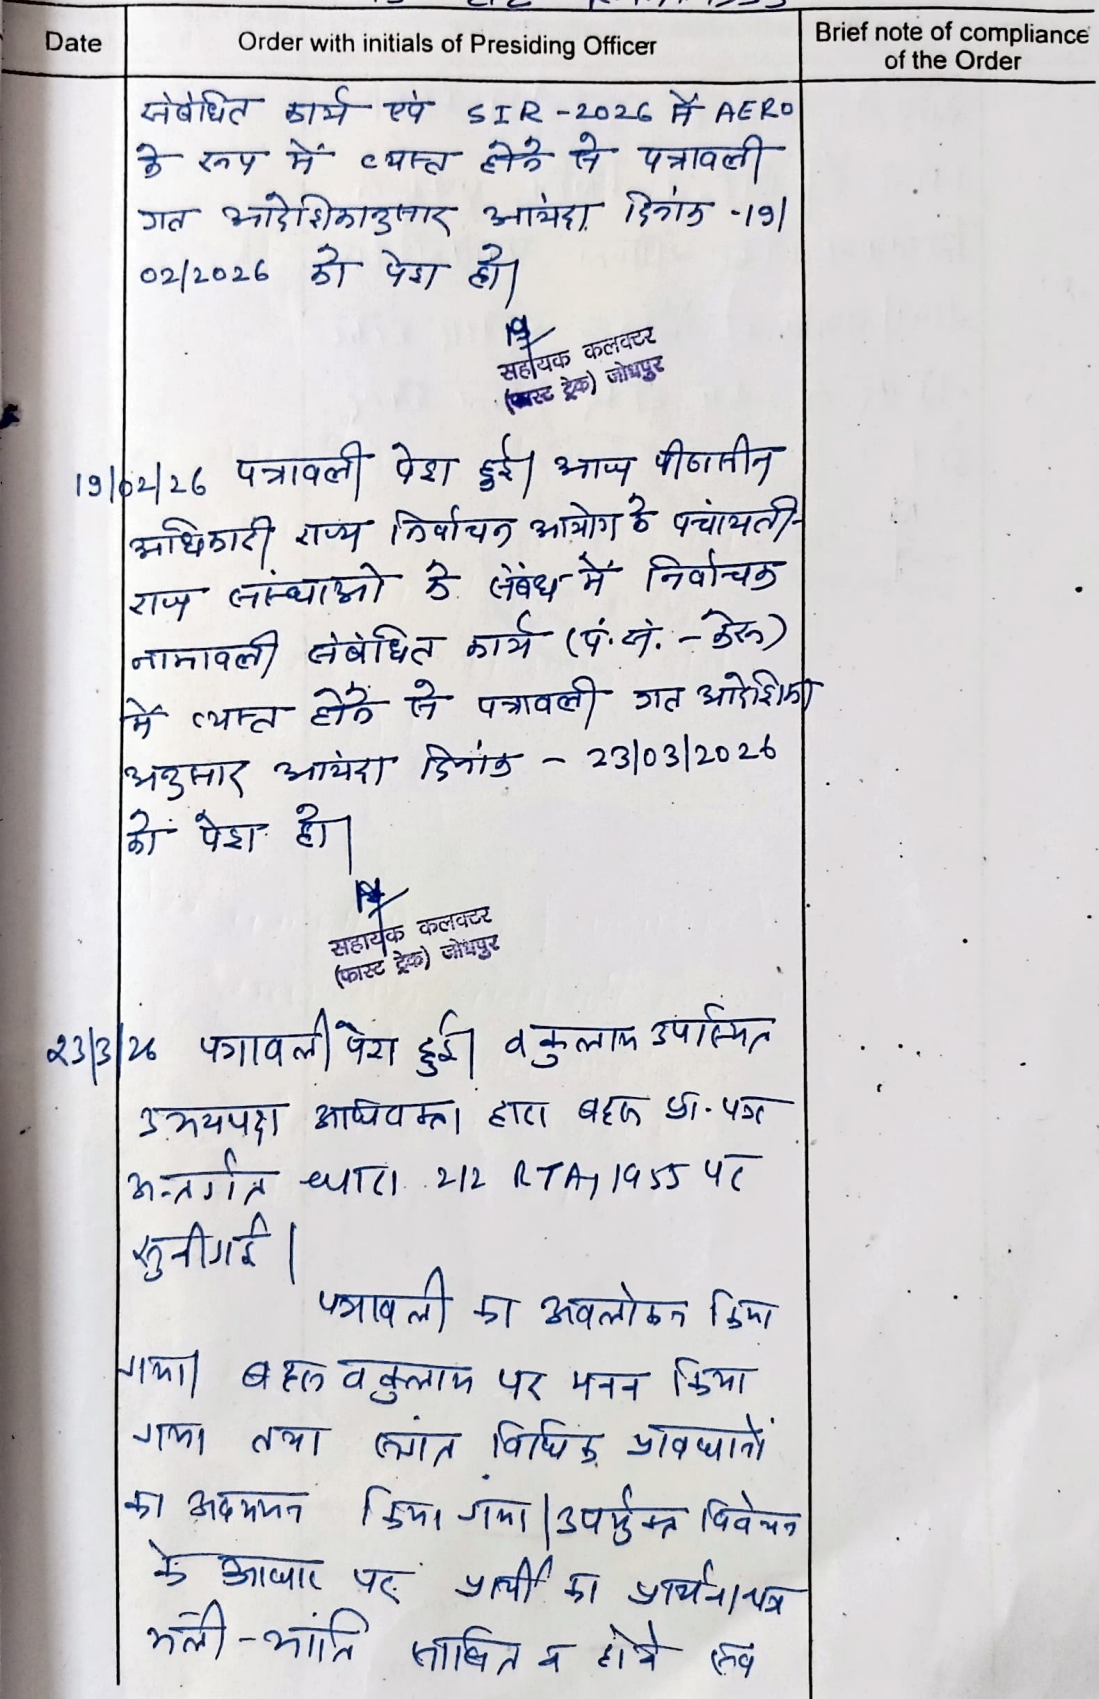 Date
Order with initials of Presiding Officer
Brief note of compliance
of the Order
संबंधित कार्य एवं SIR-2026 में AERO
के रूप में व्यस्त होने से पत्रावली
गत आदेशिकानुसार आयंदा दिनांक -19/
02/2026 को पेश हो।
सहायक कलक्टर
(फास्ट ट्रेक) जोधपुर
19/02/26 पत्रावली पेश हुई। आज पीठासीन
अधिकारी राज्य निर्वाचन आयोग के पंचायती-
राज संस्थाओं के संबंध में निर्वाचक
नामावली संबंधित कार्य (पं.सं. - केरू)
में व्यस्त होने से पत्रावली गत आदेशिका
अनुसार आयंदा दिनांक - 23/03/2026
को पेश हो।
सहायक कलक्टर
(फास्ट ट्रेक) जोधपुर
23/3/26 पत्रावली पेश हुई। वकुलाय उपस्थित
उभयपक्ष अधिवक्ता द्वारा बहस प्रा. पत्र
अन्तर्गत धारा 212 RTA, 1955 पर
सुनी गई।
पत्रावली का अवलोकन किया
गया। बहस वकुलाय पर मनन किया
गया तथा विधिक प्रावधानों
का अध्ययन किया गया। उपर्युक्त विवेचन
के आधार पर प्रार्थी का प्रार्थना पत्र
भली-भांति साबित न होने एवं